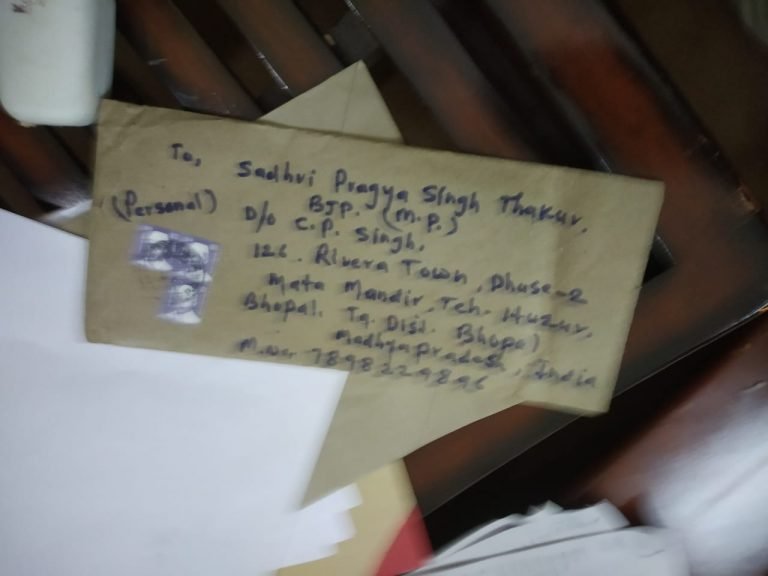 To,
Sadhvi Pragya Singh Thakur,
(Personal)
BJP. (M.P.)
D/o C.P. Singh,
126, Rivera Town, Phase-2
Mata Mandir, Teh. Huzur,
Bhopal. Ta. Dist. Bhopal
Madhyapradesh, India
M.No. 7898229896